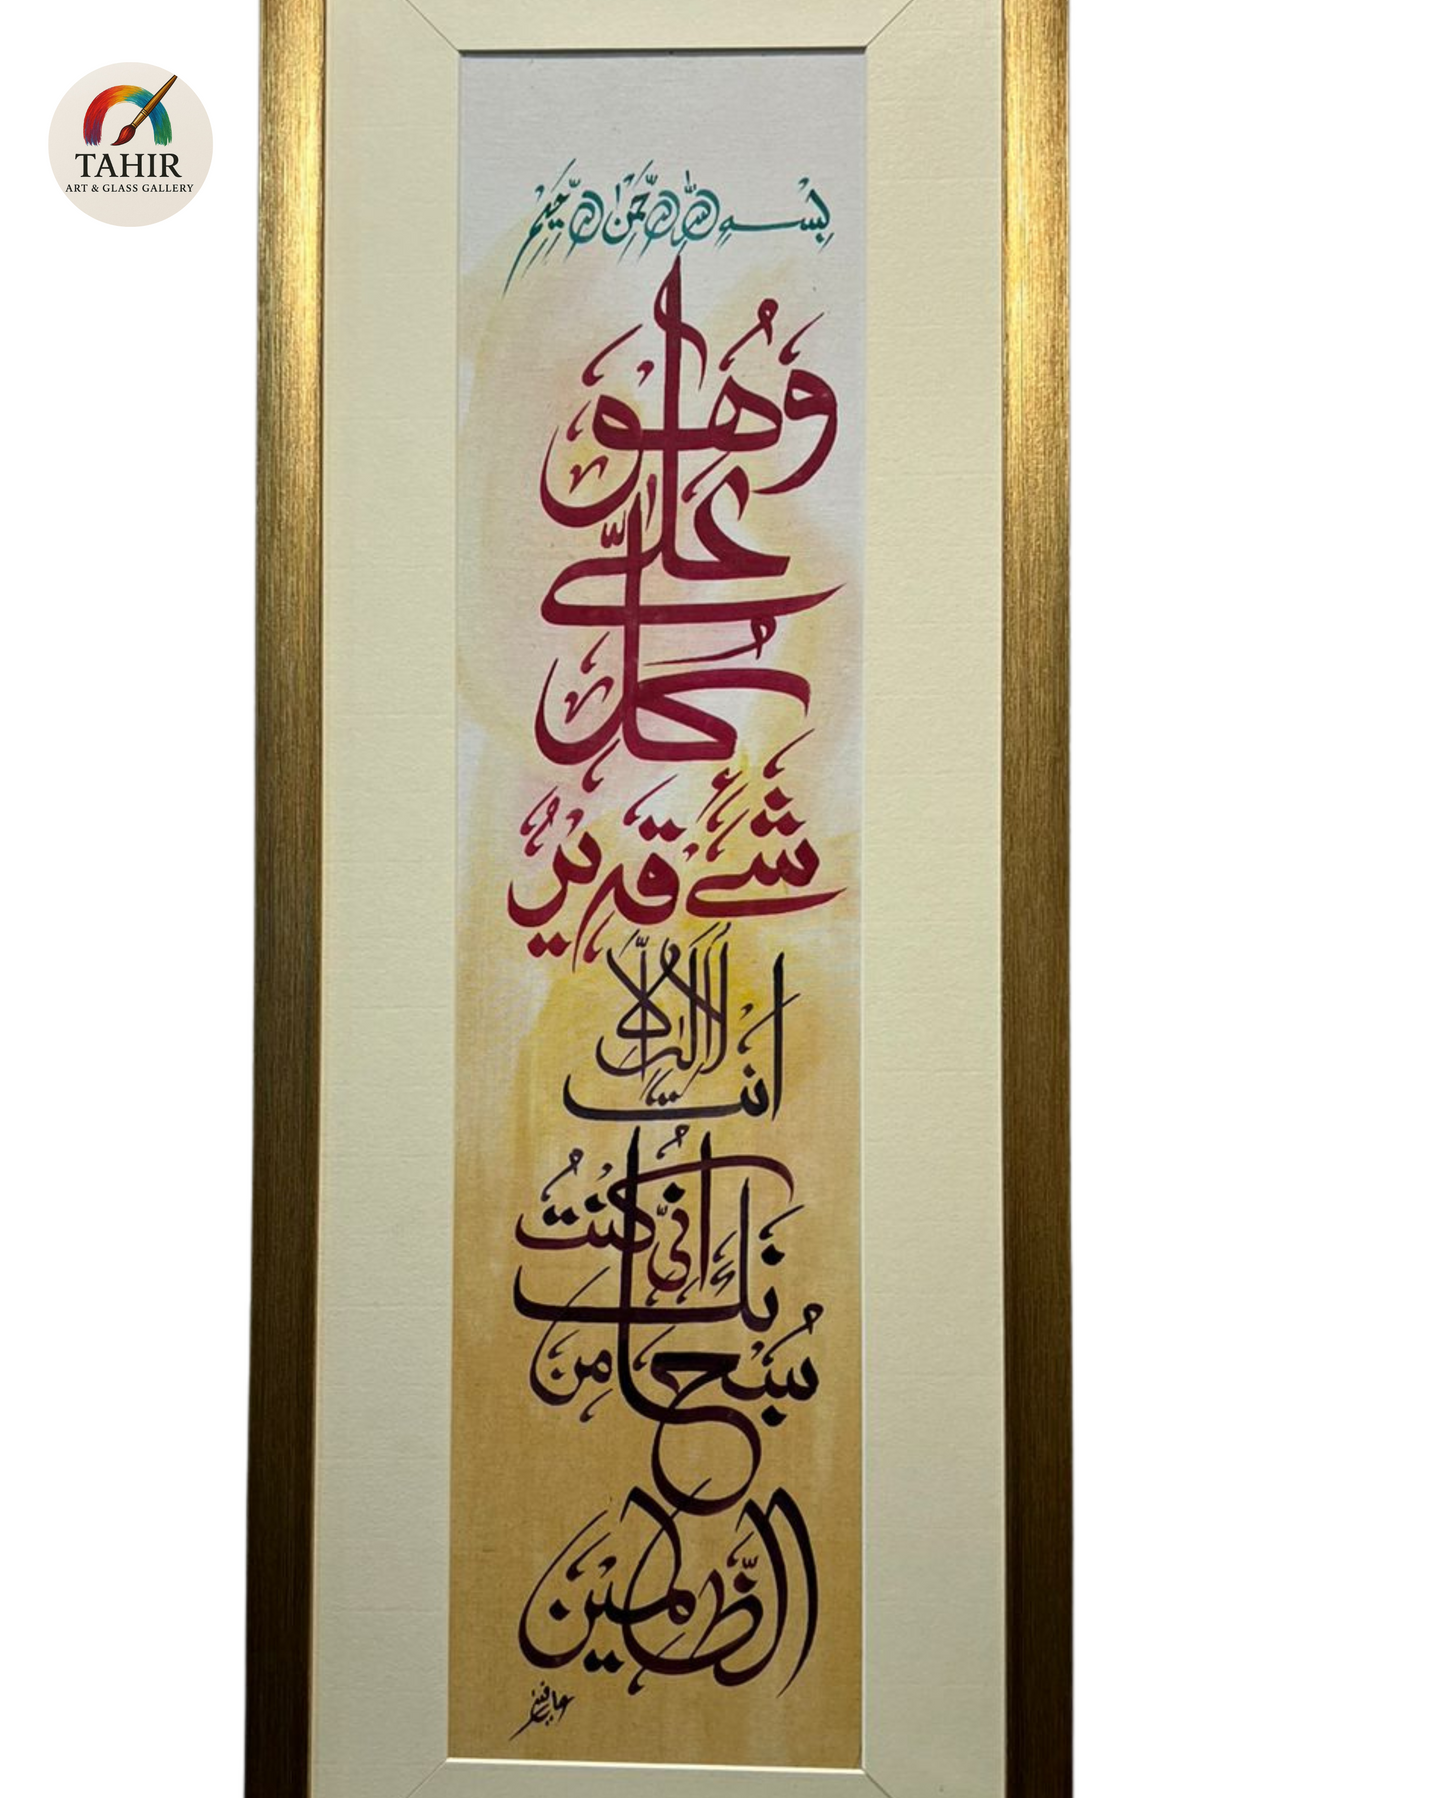 TAHIR
ART & GLASS GALLERY
بسم الله الرحمن الرحيم
وَهُوَ
عَلٰى
كُلِّ
شَيْءٍ قَدِيْرٌ
لَا اِلٰهَ اِلَّا
اَنْتَ
سُبْحَانَكَ
اِنِّي كُنْتُ
مِنَ
الظَّالِمِيْنَ